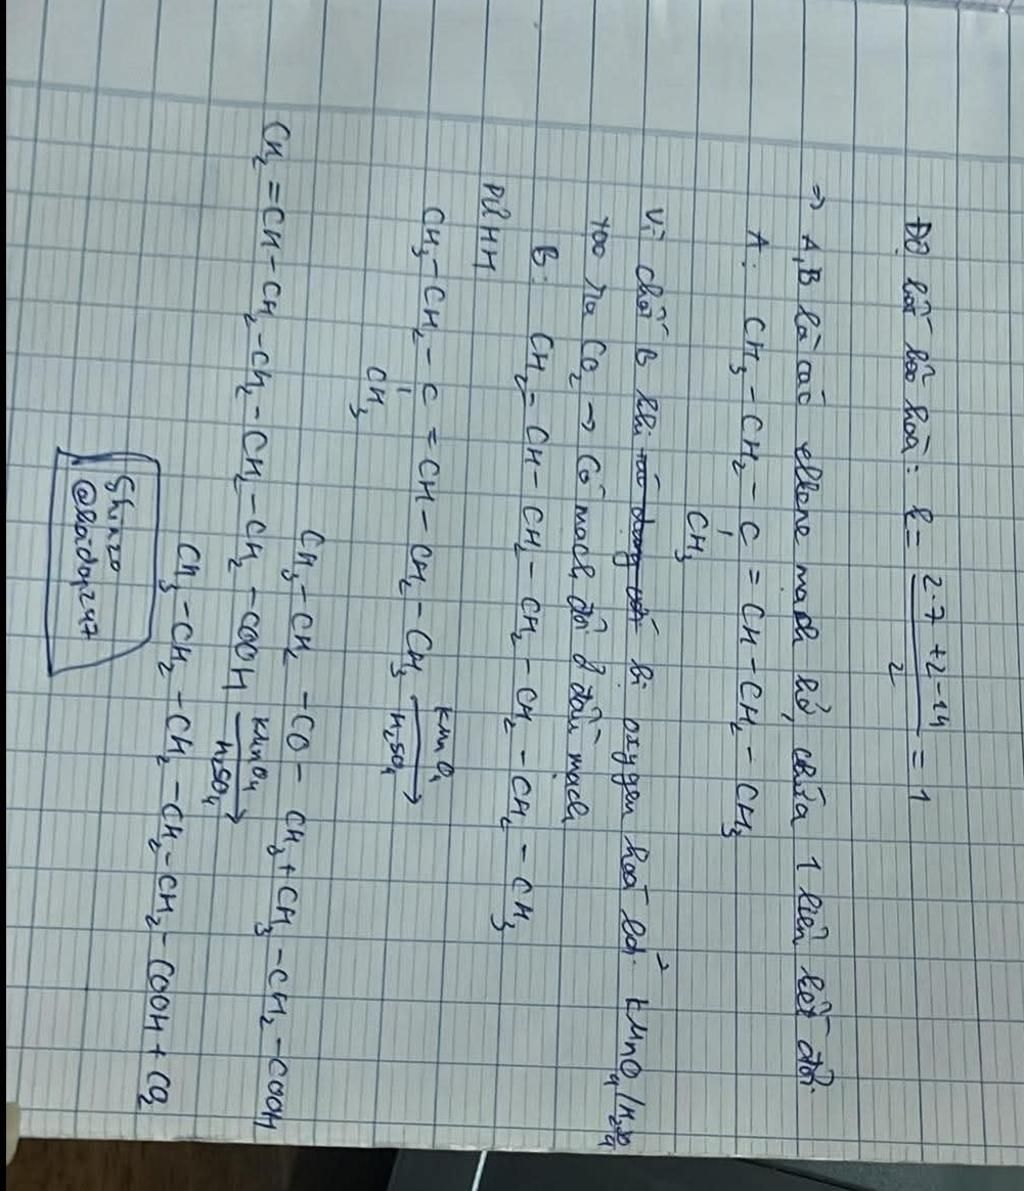 Độ bất bão hoà: k = (2.7 + 2 - 14)/2 = 1
=> A, B là các alkene mạch hở, chứa 1 liên kết đôi.
A: CH₃ - CH₂ - C = CH - CH₂ - CH₃
CH₃
Vì chất B khi bị oxygen hoá bởi KMnO₄/H₂SO₄
tạo ra CO₂ → Có mạch đôi ở đầu mạch
B: CH₂ = CH - CH₂ - CH₂ - CH₂ - CH₂ - CH₃
PTHH
CH₃ - CH₂ - C = CH - CH₂ - CH₃ KMnO₄ H₂SO₄ →
CH₃
CH₃ - CH₂ - CO - CH₃ + CH₃ - CH₂ - COOH
CH₂ = CH - CH₂ - CH₂ - CH₂ - CH₂ - COOH KMnO₄ H₂SO₄ →
CH₃ - CH₂ - CH₂ - CH₂ - CH₂ - COOH + CO₂
Shinzo